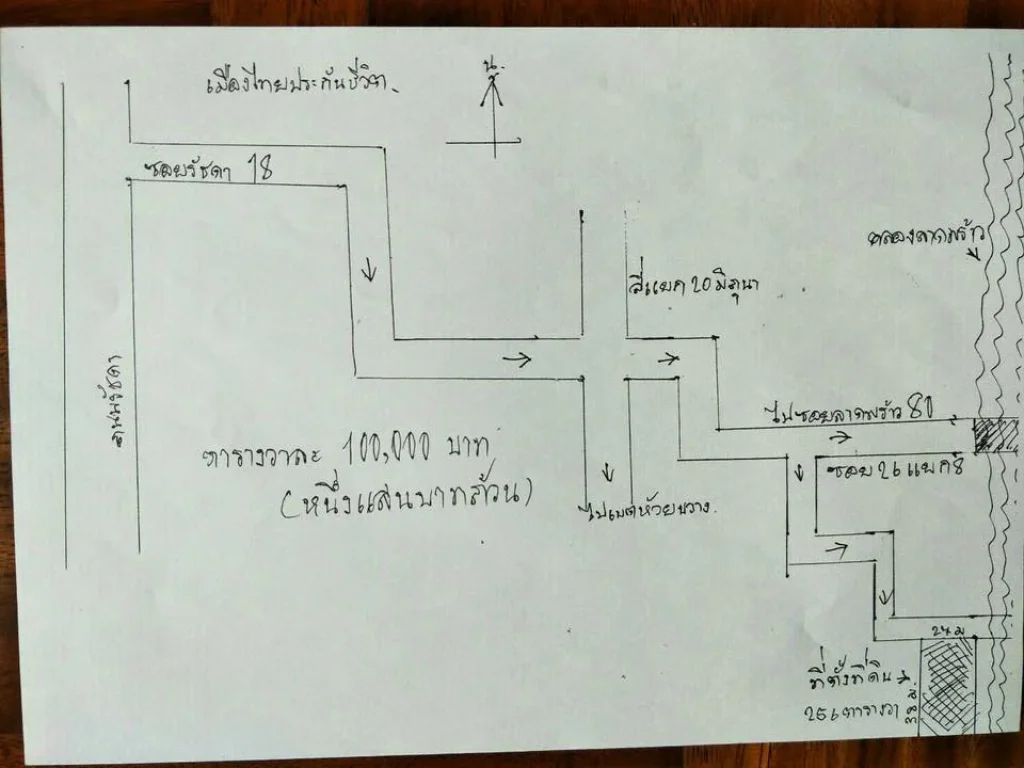 น.
เมืองไทยประกันชีวิต
ซอยรัชดา 18
คลองลาดพร้าว
สี่แยก 20 มิถุนา
ถนนรัชดา
ไปซอยลาดพร้าว 80
ตารางวาละ 100,000 บาท
(หนึ่งแสนบาทถ้วน)
ซอย 26 แยก 8
ไปเขตห้วยขวาง
24 ม
ที่ตั้งที่ดิน
256 ตารางวา